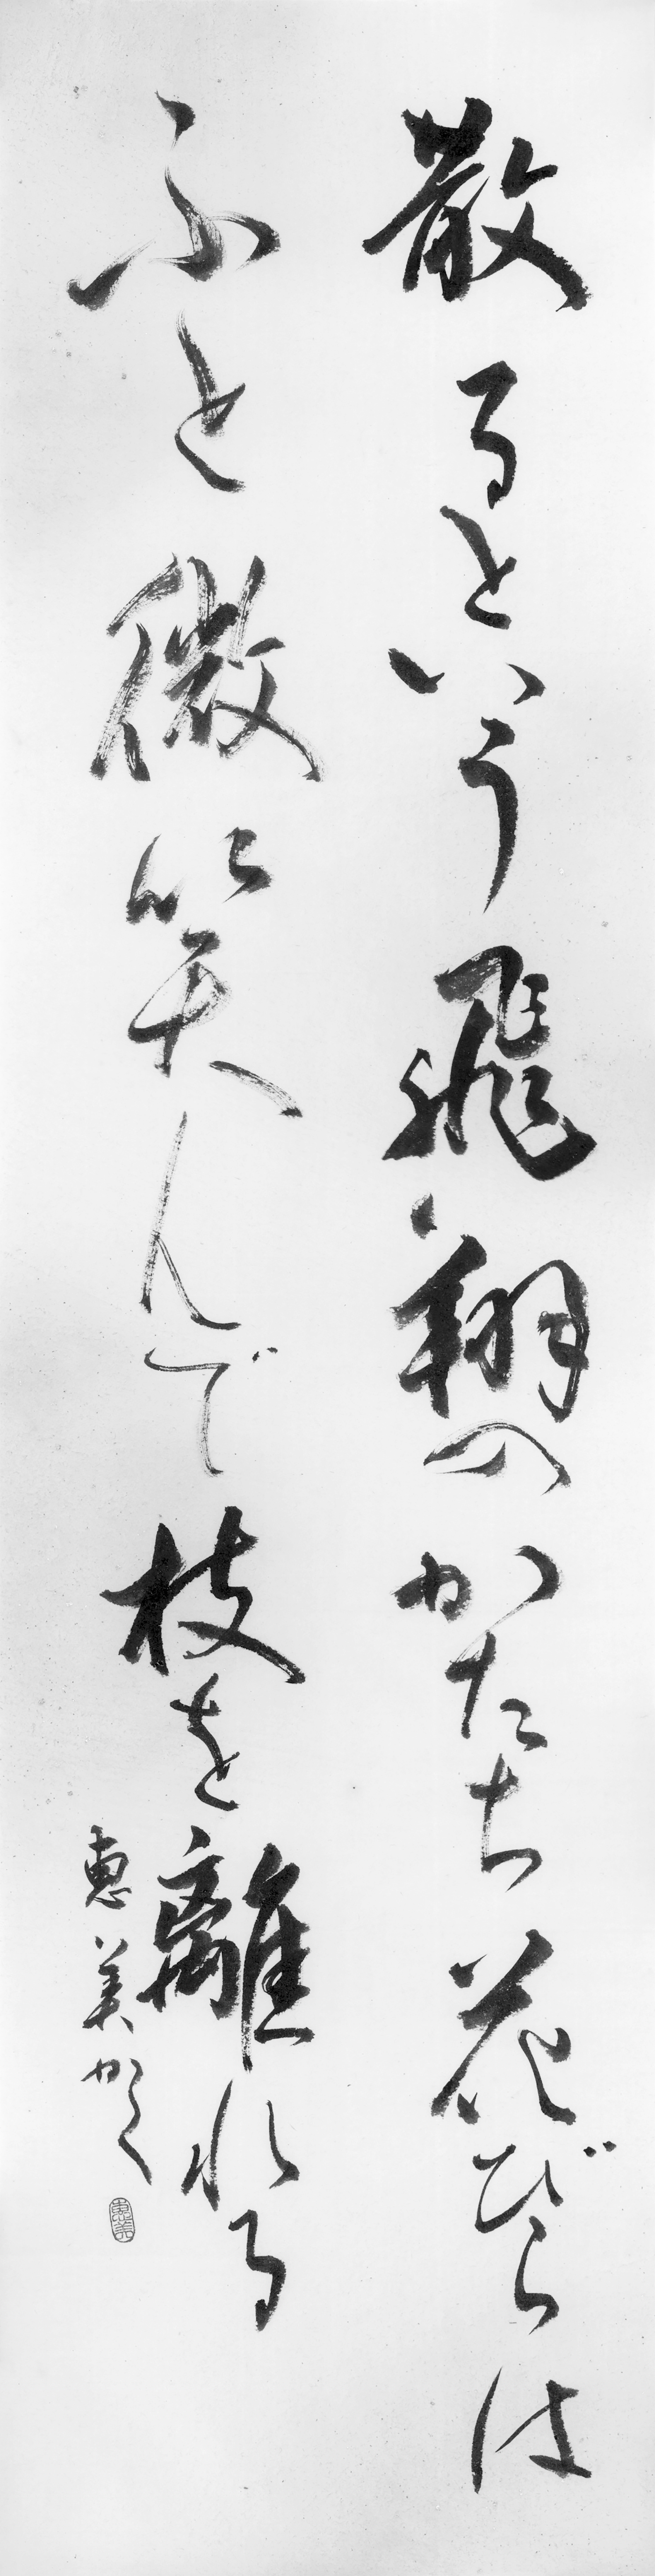 散るという飛翔のかたち花びらは
ふと微笑んで枝を離れる
恵美かく
恵美